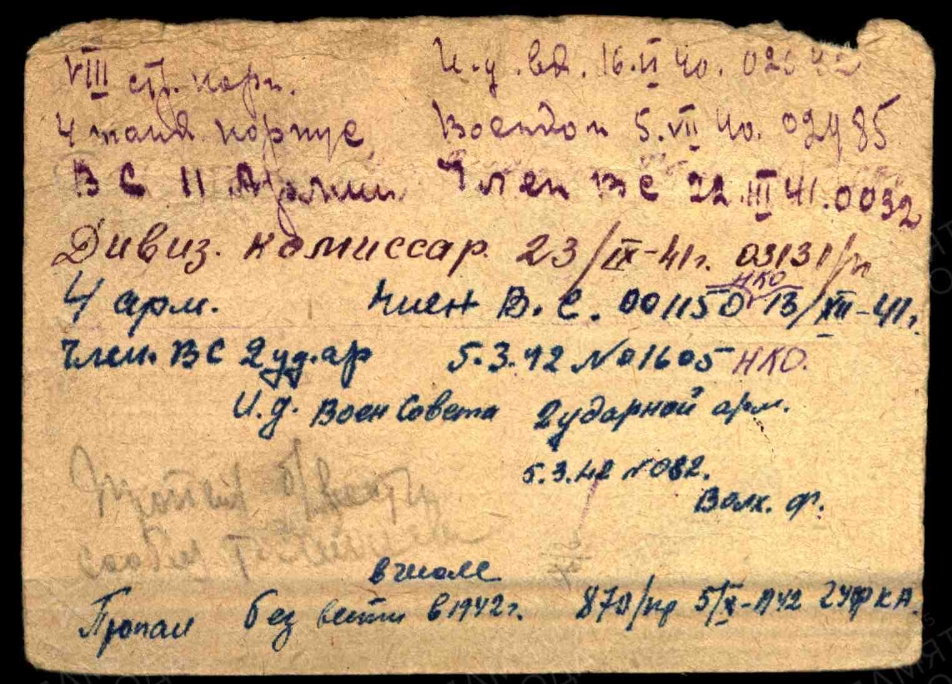 VIII стр. корп. И.д. ВК. 16.II 40. 02642
4 танк. корпус, Военком 5.VII 40. 02985
ВС 11 Армии Член ВС 22.III 41.0032
Дивиз. комиссар. 23/IX-41г. 03131/п
НКО
4 арм. Член В.С. 001150 13/XII-41г.
Член. ВС 2 уд.ар 5.3.42 № 01605 НКО.
И.д. Воен Совета 2 ударной арм.
5.3.42 № 082.
Волх. ф.
Пропал б/вести
сообщ
в июле
Пропал без вести в 1942г. 870/пр 5/X-1942 ГУФКА.